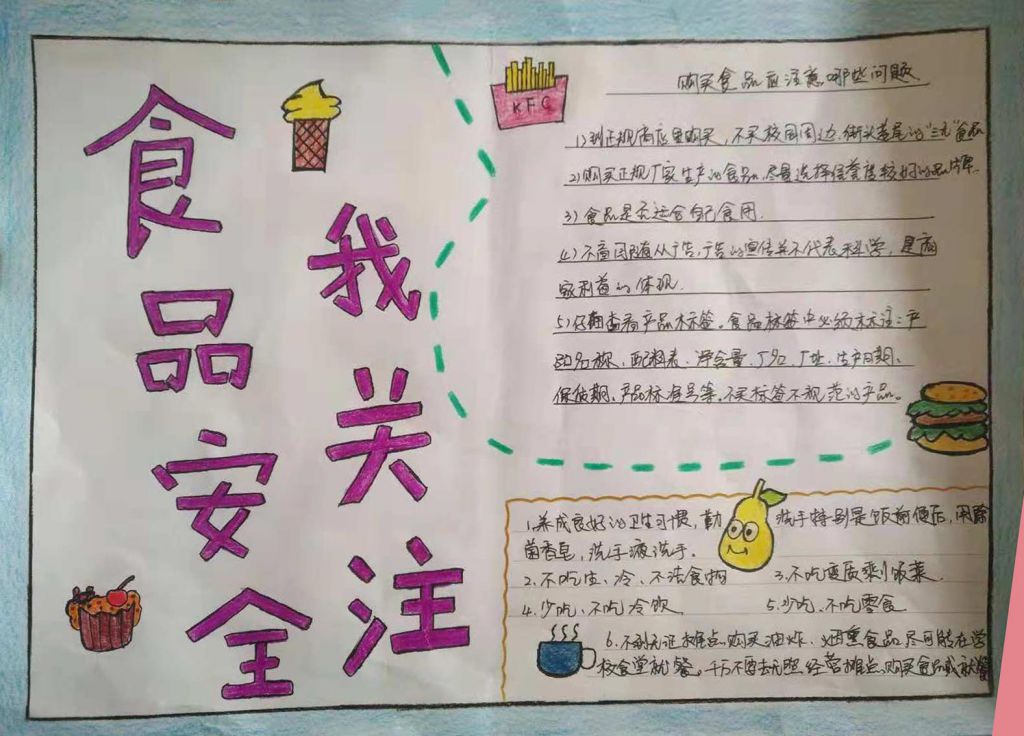 食品安全
我关注
KFC
购买食品应注意哪些问题
1)到正规商店里购买,不买校园周边、街头巷尾的"三无"食品
2)购买正规厂家生产的食品,尽量选择信誉度较好的品牌.
3)食品是否适合自己食用.
4)不盲目随从广告,广告的宣传并不代表科学,是商
家利益的体现.
5)仔细查看产品标签。食品标签中必须标注:产
品名称、配料表、净含量、厂名、厂址、生产日期、
保质期、产品标准号等。不买标签不规范的产品。
1.养成良好的卫生习惯,勤洗手特别是饭前便后,用除
菌香皂,洗手液洗手.
2.不吃生、冷、不洁食物 3.不吃变质剩饭菜.
4.少吃、不吃冷饮 5.少吃、不吃零食
6.不到无证摊点购买油炸、烟熏食品尽可能在学
校食堂就餐。千万不要去无照经营摊点购买食品或就餐